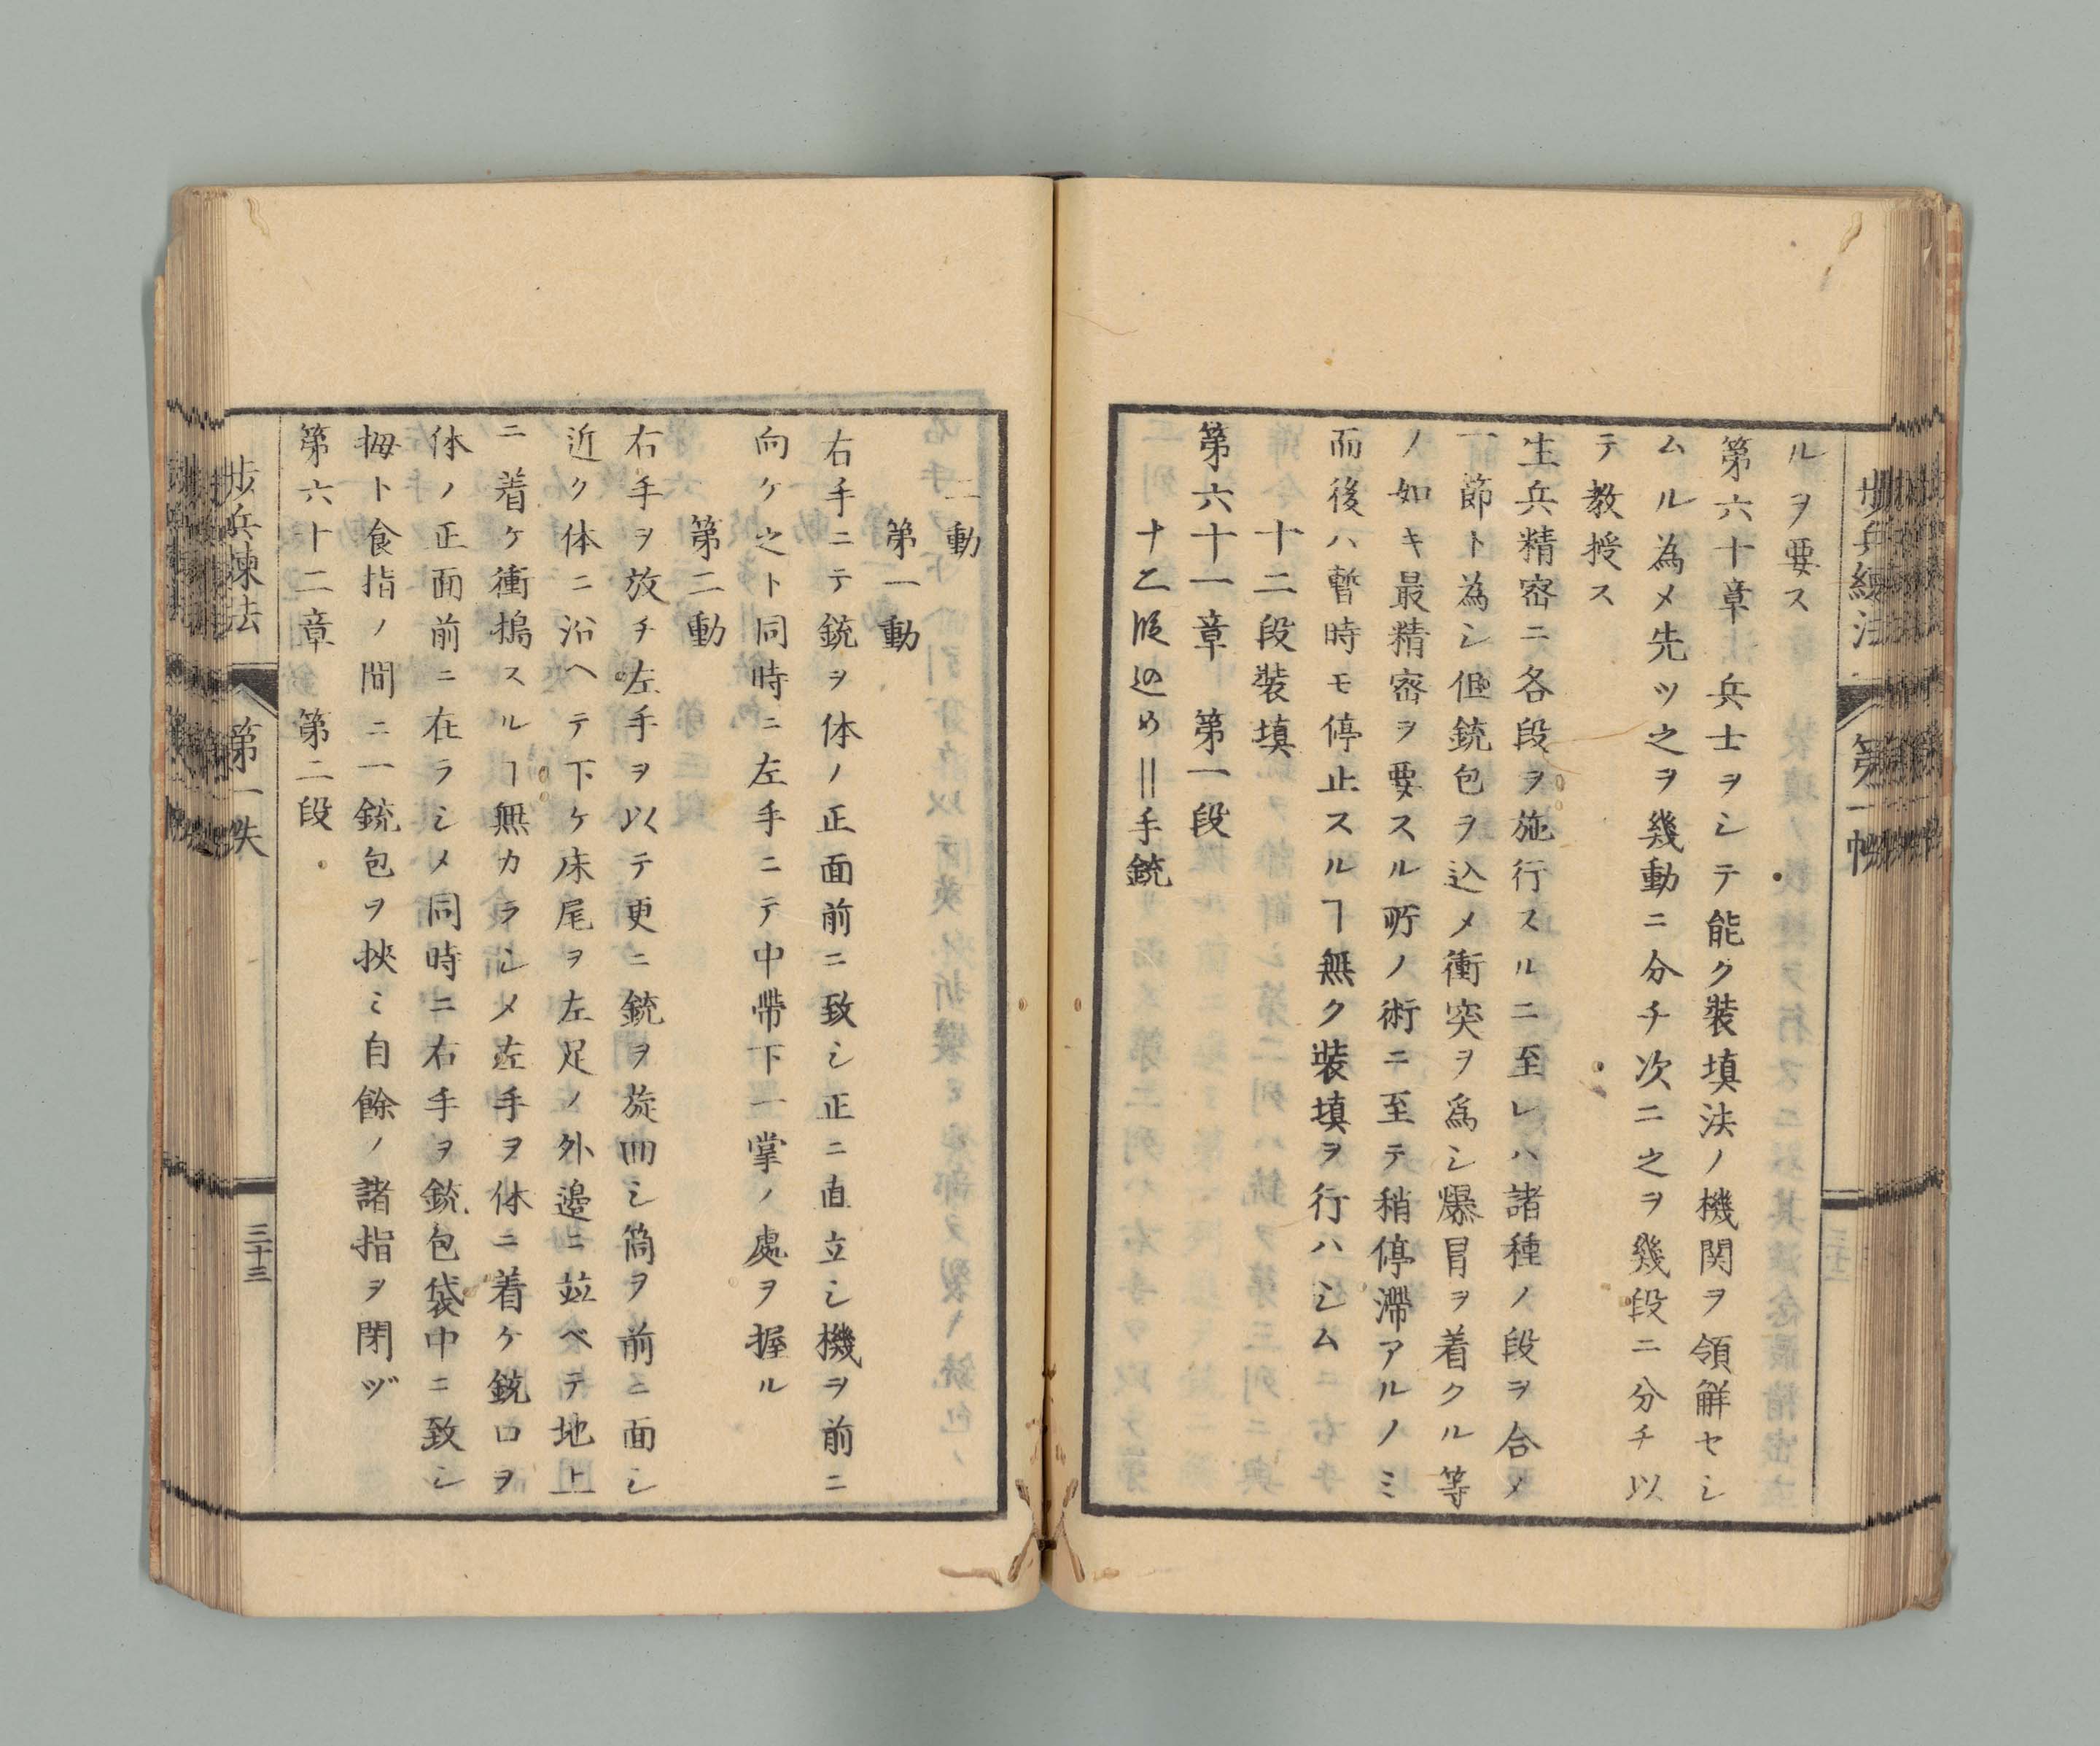 ルヲ要ス
第六十章 兵士ヲシテ能ク装填法ノ機関ヲ領解セシ
ムル為メ先ツ之ヲ幾動ニ分チ次ニ之ヲ幾段ニ分チ以
テ教授ス
生兵精密ニ各段ヲ施行スルニ至レハ諸種ノ段ヲ合メ
一節ト為シ但銃包ヲ込メ衝突ヲ爲シ爆冒ヲ着クル等
ノ如キ最精密ヲ要スル所ノ術ニ至テ稍停滞アルノミ
而後ハ暫時モ停止スルヿ無ク装填ヲ行ハシム
十二段装填
第六十一章 第一段
十乙段込め＝手銃
二動
第一動
右手ニテ銃ヲ体ノ正面前ニ致シ正ニ直立シ機ヲ前ニ
向ケ之ト同時ニ左手ニテ中帯下一掌ノ處ヲ握ル
第二動
右手ヲ放チ左手ヲ以テ更ニ銃ヲ旋囬シ筒ヲ前ニ面シ
近ク体ニ沿ヘテ下ケ床尾ヲ左足ノ外邉ニ竝ベテ地上
ニ着ケ衝搗スルヿ無カラシメ左手ヲ体ニ着ケ銃口ヲ
体ノ正面前ニ在ラシメ同時ニ右手ヲ銃包袋中ニ致シ
拇ト食指ノ間ニ一銃包ヲ挾ミ自餘ノ諸指ヲ閉ヅ
第六十二章 第二段
歩兵練法 第一帙
三十三